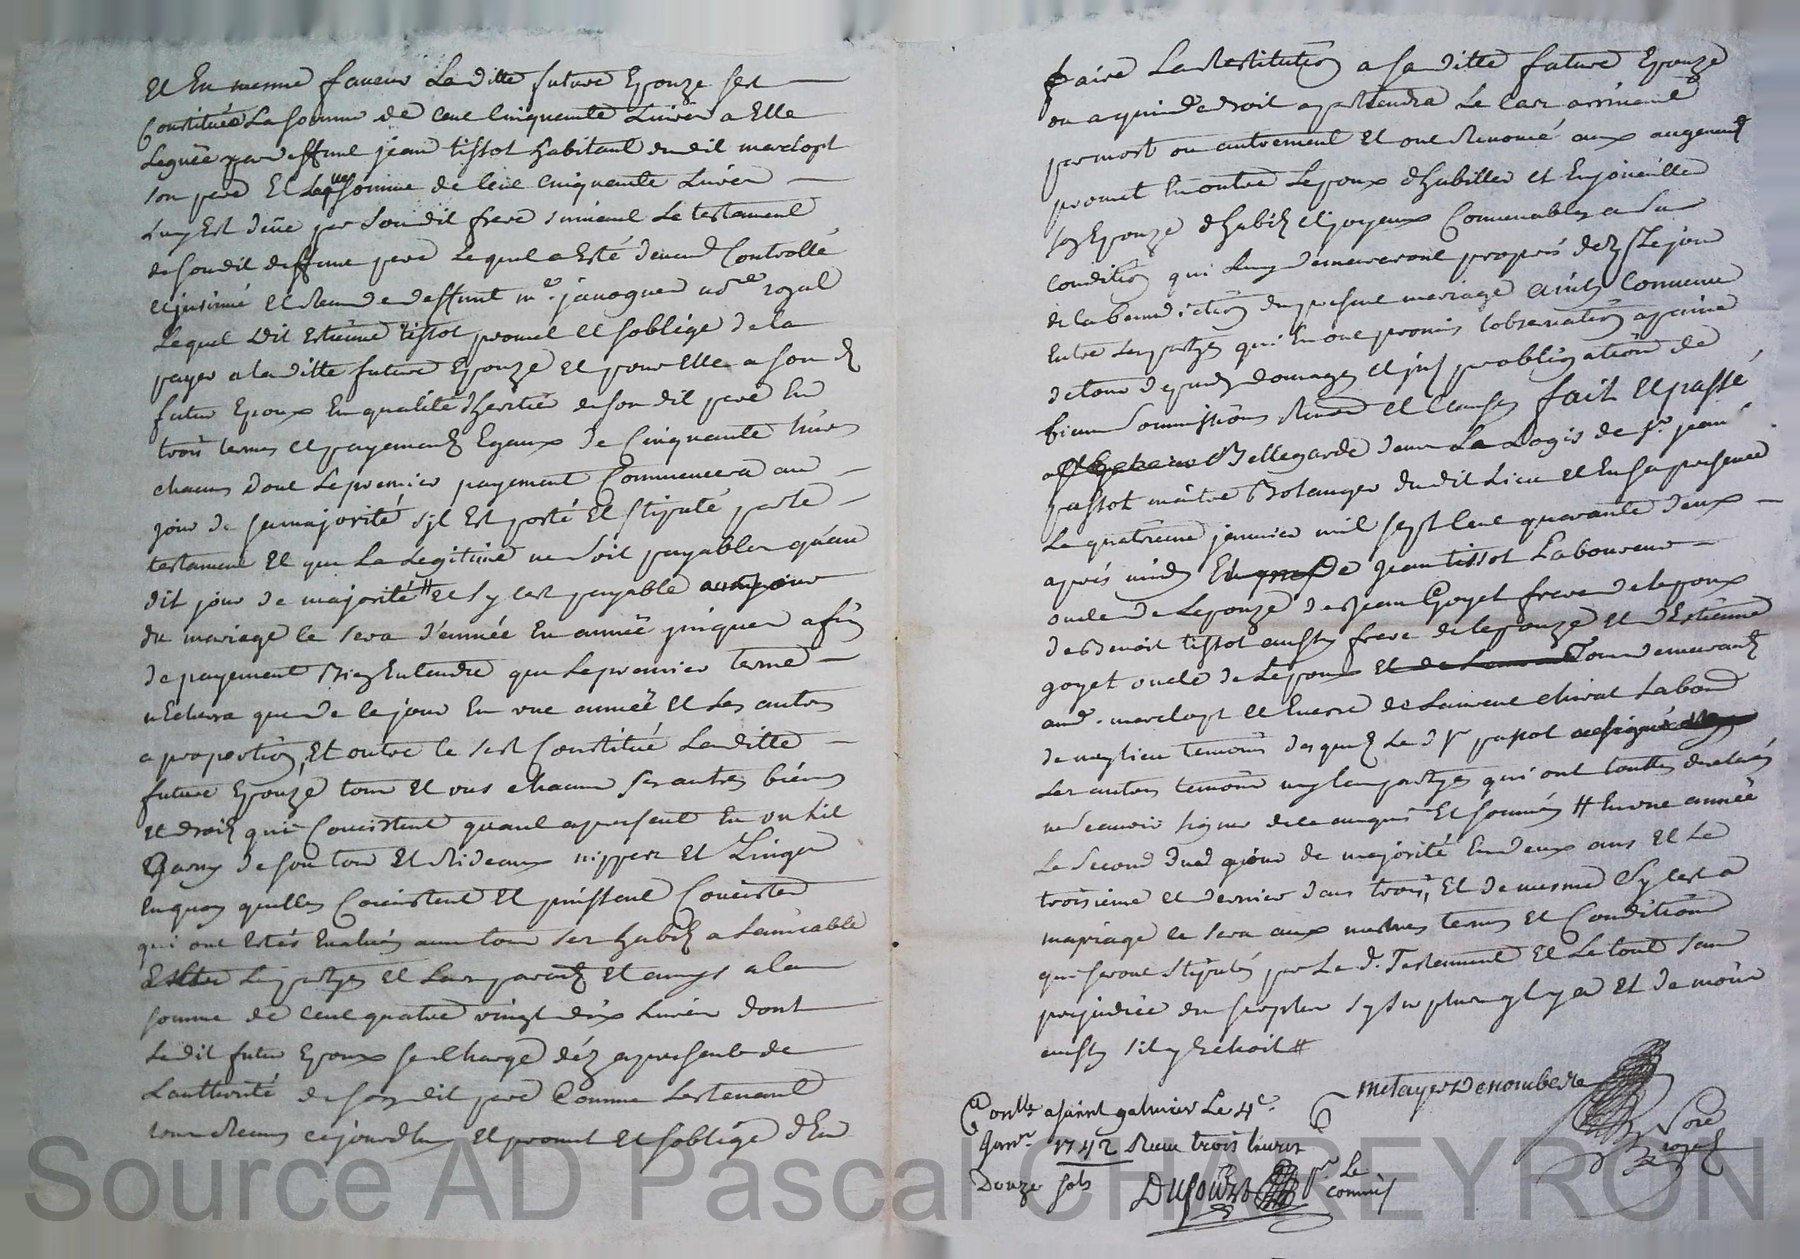 Et En meme faveur La ditte future Epouze sest
Constituée La somme de cent cinquante Livres a Elle
Leguée par deffunt jean tissot habitant dudit marclopt
son pere Et laqlle somme de cent cinquante Livres
Luy Est deüe par son dit frere suivant Le testament
de son dit deffunt pere Lequel a Esté deuement Controllé
et insinué et receu de deffunt me. javogues nore royal
Lequel dit Estienne tissot promet et soblige de la
payer a la ditte future Epouze et pour Elle a son d
futur Epoux En qualité dheritié de son dit pere En
trois termes et payements Egaux de Cinquante livres
chacun dont Le premier payement Commencera au
jour de sa majorité sil Est porté et stipulé par le
testament et que La Legitime ne soit payables quau
dit jour de majorité # et sy cest payable
du mariage ce sera d'année En année jusques a fin
de payement Bien Entendu que Le premier terme
n'Echerra que de ce jour En une année et Les autres
a proportion, Et outre ce sest Constitué La ditte
future Epouze tous et uns chacuns ses autres biens
et droits qui Concistent quant a present En un Lit
Garny de son tour et Rideaux nippes et Linges
En quoy quelles Concistent et puissent Concister
qui ont Estés Evalués avec tous ses habits a Lamicable
Entre Les partyes et Leurs parents et amys a la
somme de cent quatre vingt dix Livres dont
Le dit futur Epoux se charge déz a present de
Lautthorité de son dit pere Comme Les tenant
pour receus cejourdhuy et promet et soblige d'En
faire La Restitution a sa ditte future Epouze
ou a qui de droit apartiendra Le cas arrivant
par mort ou autrement et ont Renoncé aux augments
promet En outre Lepoux dhabiller et Enjoueiller
son Epouze d'habits et joyaux Convenables a sa
condition qui Luy demeureront propres dez Le jour
de la benediction du present mariage ainsy Convenu
Entre Les partyes qui En ont promis Lobservation a peine
de tous depends domages et int par obligation de
biens soumissions Renon et clauses fait et passé
a Bellegarde dans Le Logis de sr. jean
passot maitre Bolanger dudit Lieu et En sa presence
Le quatrieme janvier mil sept cent quarante deux
aprés midy de jean tissot Laboureur
oncle de Lepouze de jean Goyet frere de Lepoux
de Benoit tissot aussy frere de Lepouze et d'Estienne
goyet oncle de Lepoux tous demeurants
aud. marclopt et Encore de Laurent chirat Labour
de meylieu temoins desquels Le d sr passot
Les autres temoins ny Les partyes qui ont touttes declarés
ne scauoir signer de ce enquis Et sommés # En une année
Le second dud jour de majorité En deux ans et Le
troisieme et dernier dans trois, Et de mesme sy cest a
mariage ce sera aux mêmes termes et Conditions
qui seront stipulés par Le d. Testament et Le tout sans
prejudice du suplement sy plus y En a et de moins
aussy s'il y Echoit #
metayer Denombede
Contlle a saint galmier Le 4e.
Janvr 1742 Receu trois livres
Douze sols
Dusouzo
pr Le
commis
Source AD Pascal CHAREYRON